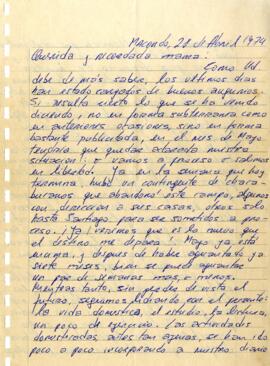 Macondo, 28 de Abril 1974
Querida y recordada mamá:
Como Ud.
debe de más saber, los últimos días
han estado cargados de buenos augurios.
Si resulta cierto lo que se ha venido
diciendo, no en forma subterránea como
en anteriores ocasiones sino en forma
bastante publicitada, en el mes de Mayo
tendría que quedar aclarada nuestra
situación: o vamos a proceso o salimos
en libertad. Ya en la semana que hoy
termina, hubo un contingente de
que abandonó este campo, algunos
con dirección a sus casas, otros solo
hasta Santiago para ser sometidos a pro-
ceso. ¡Ya! veremos que es lo nuevo que
el destino me depara! Mayo ya está
mamá, y después de haber aguantado ya
siete meses, bien se puede aguantar
un par de semanas más o menos.
Mientras tanto, sin perder de vista el
futuro, seguimos lidiando con el presente:
la vida doméstica, el estudio, la lectura,
un poco de ejercicio. Las actividades
domésticas, antes tan ajenas, se han ido
poco a poco incorporando a nuestro diario